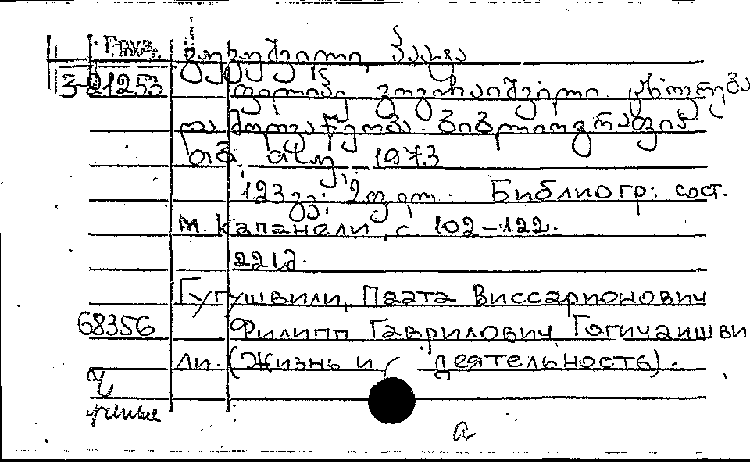 Груз. გუგუშვილი, პაატა
3-21253 ფილიპე გოგიჩაიშვილი. ცხოვრება
და მოღვაწეობა. ბიბლიოგრაფია
თბ., 1973
123 გვ; Библиогр: сост.
М. Капанели, с. 102-122.
Гугушвили, Паата Виссарионович
68356 Филипп Гаврилович Гогичаишви
ли. (Жизнь и деятельность).
а